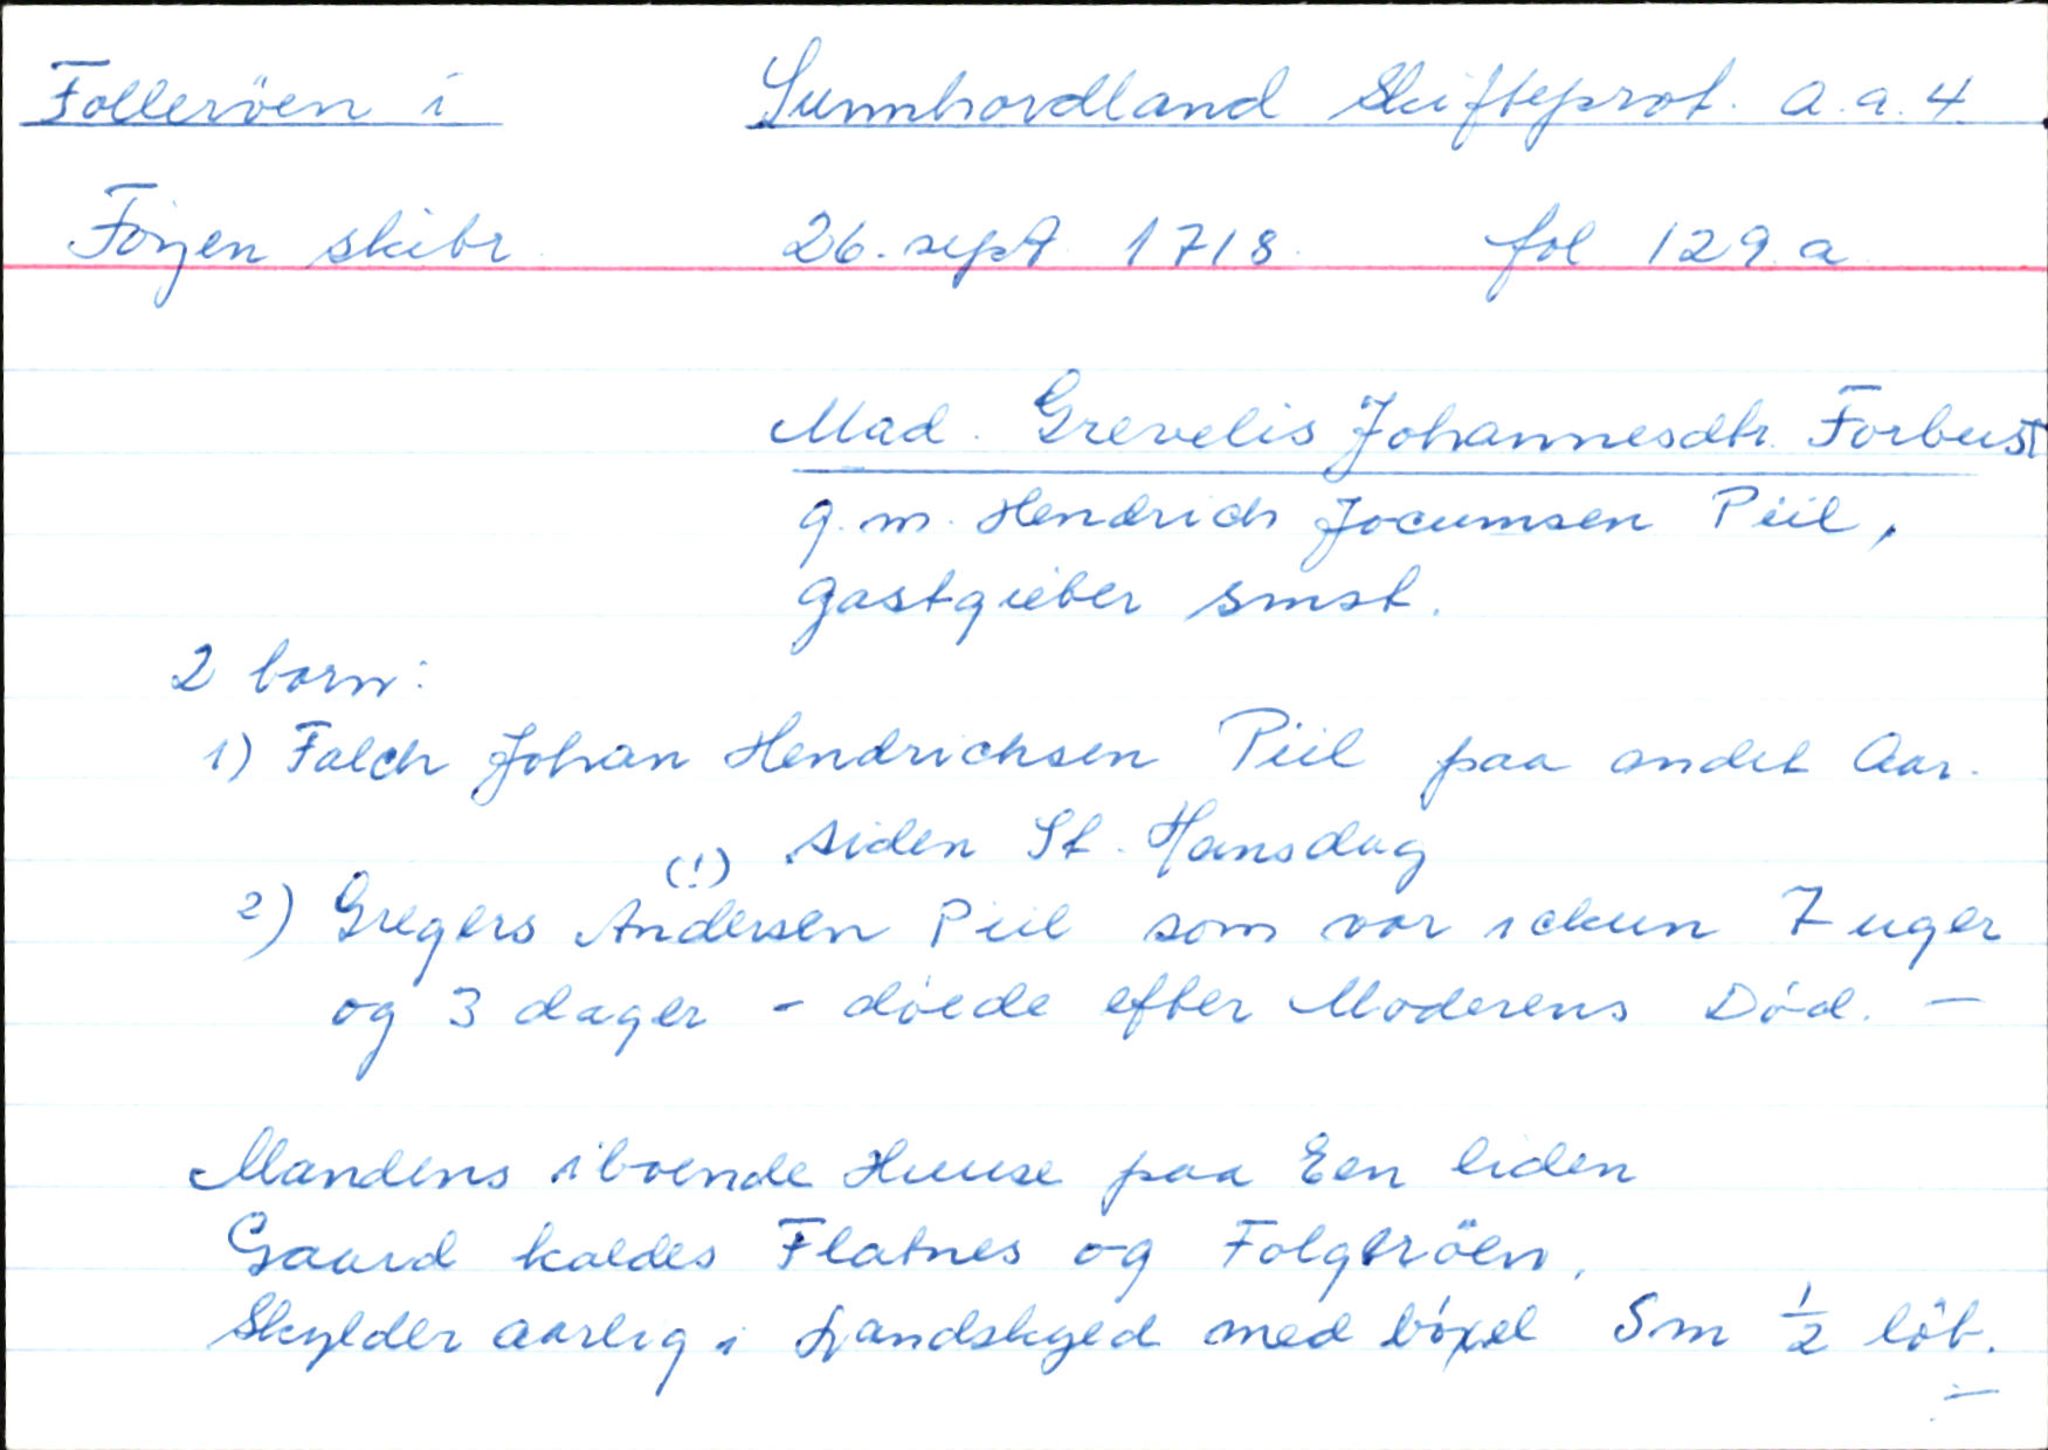 Folleröen i Sunnhordland Skifteprot. a.a.4.
Föyen skibr. 26. sept 1718. fol 129.a
Mad. Grevelis Johannesdtr. Forbust
g.m. Hendrich Jocumsen Piil,
gastgieber smst.
2 born:
1) Falch Johan Hendrichsen Piil paa andet Aar.
siden St. Hansdag
(!)
2) Gregers Andersen Piil som var ickun 7 uger
og 3 dager - döede efter Moderens Död. -
Mandens iboende Huuse paa Een liden
Gaard kaldes Flatnes og Folgeröen,
Skylder aarlig i Landskyld med böxel Sm ½ löb.